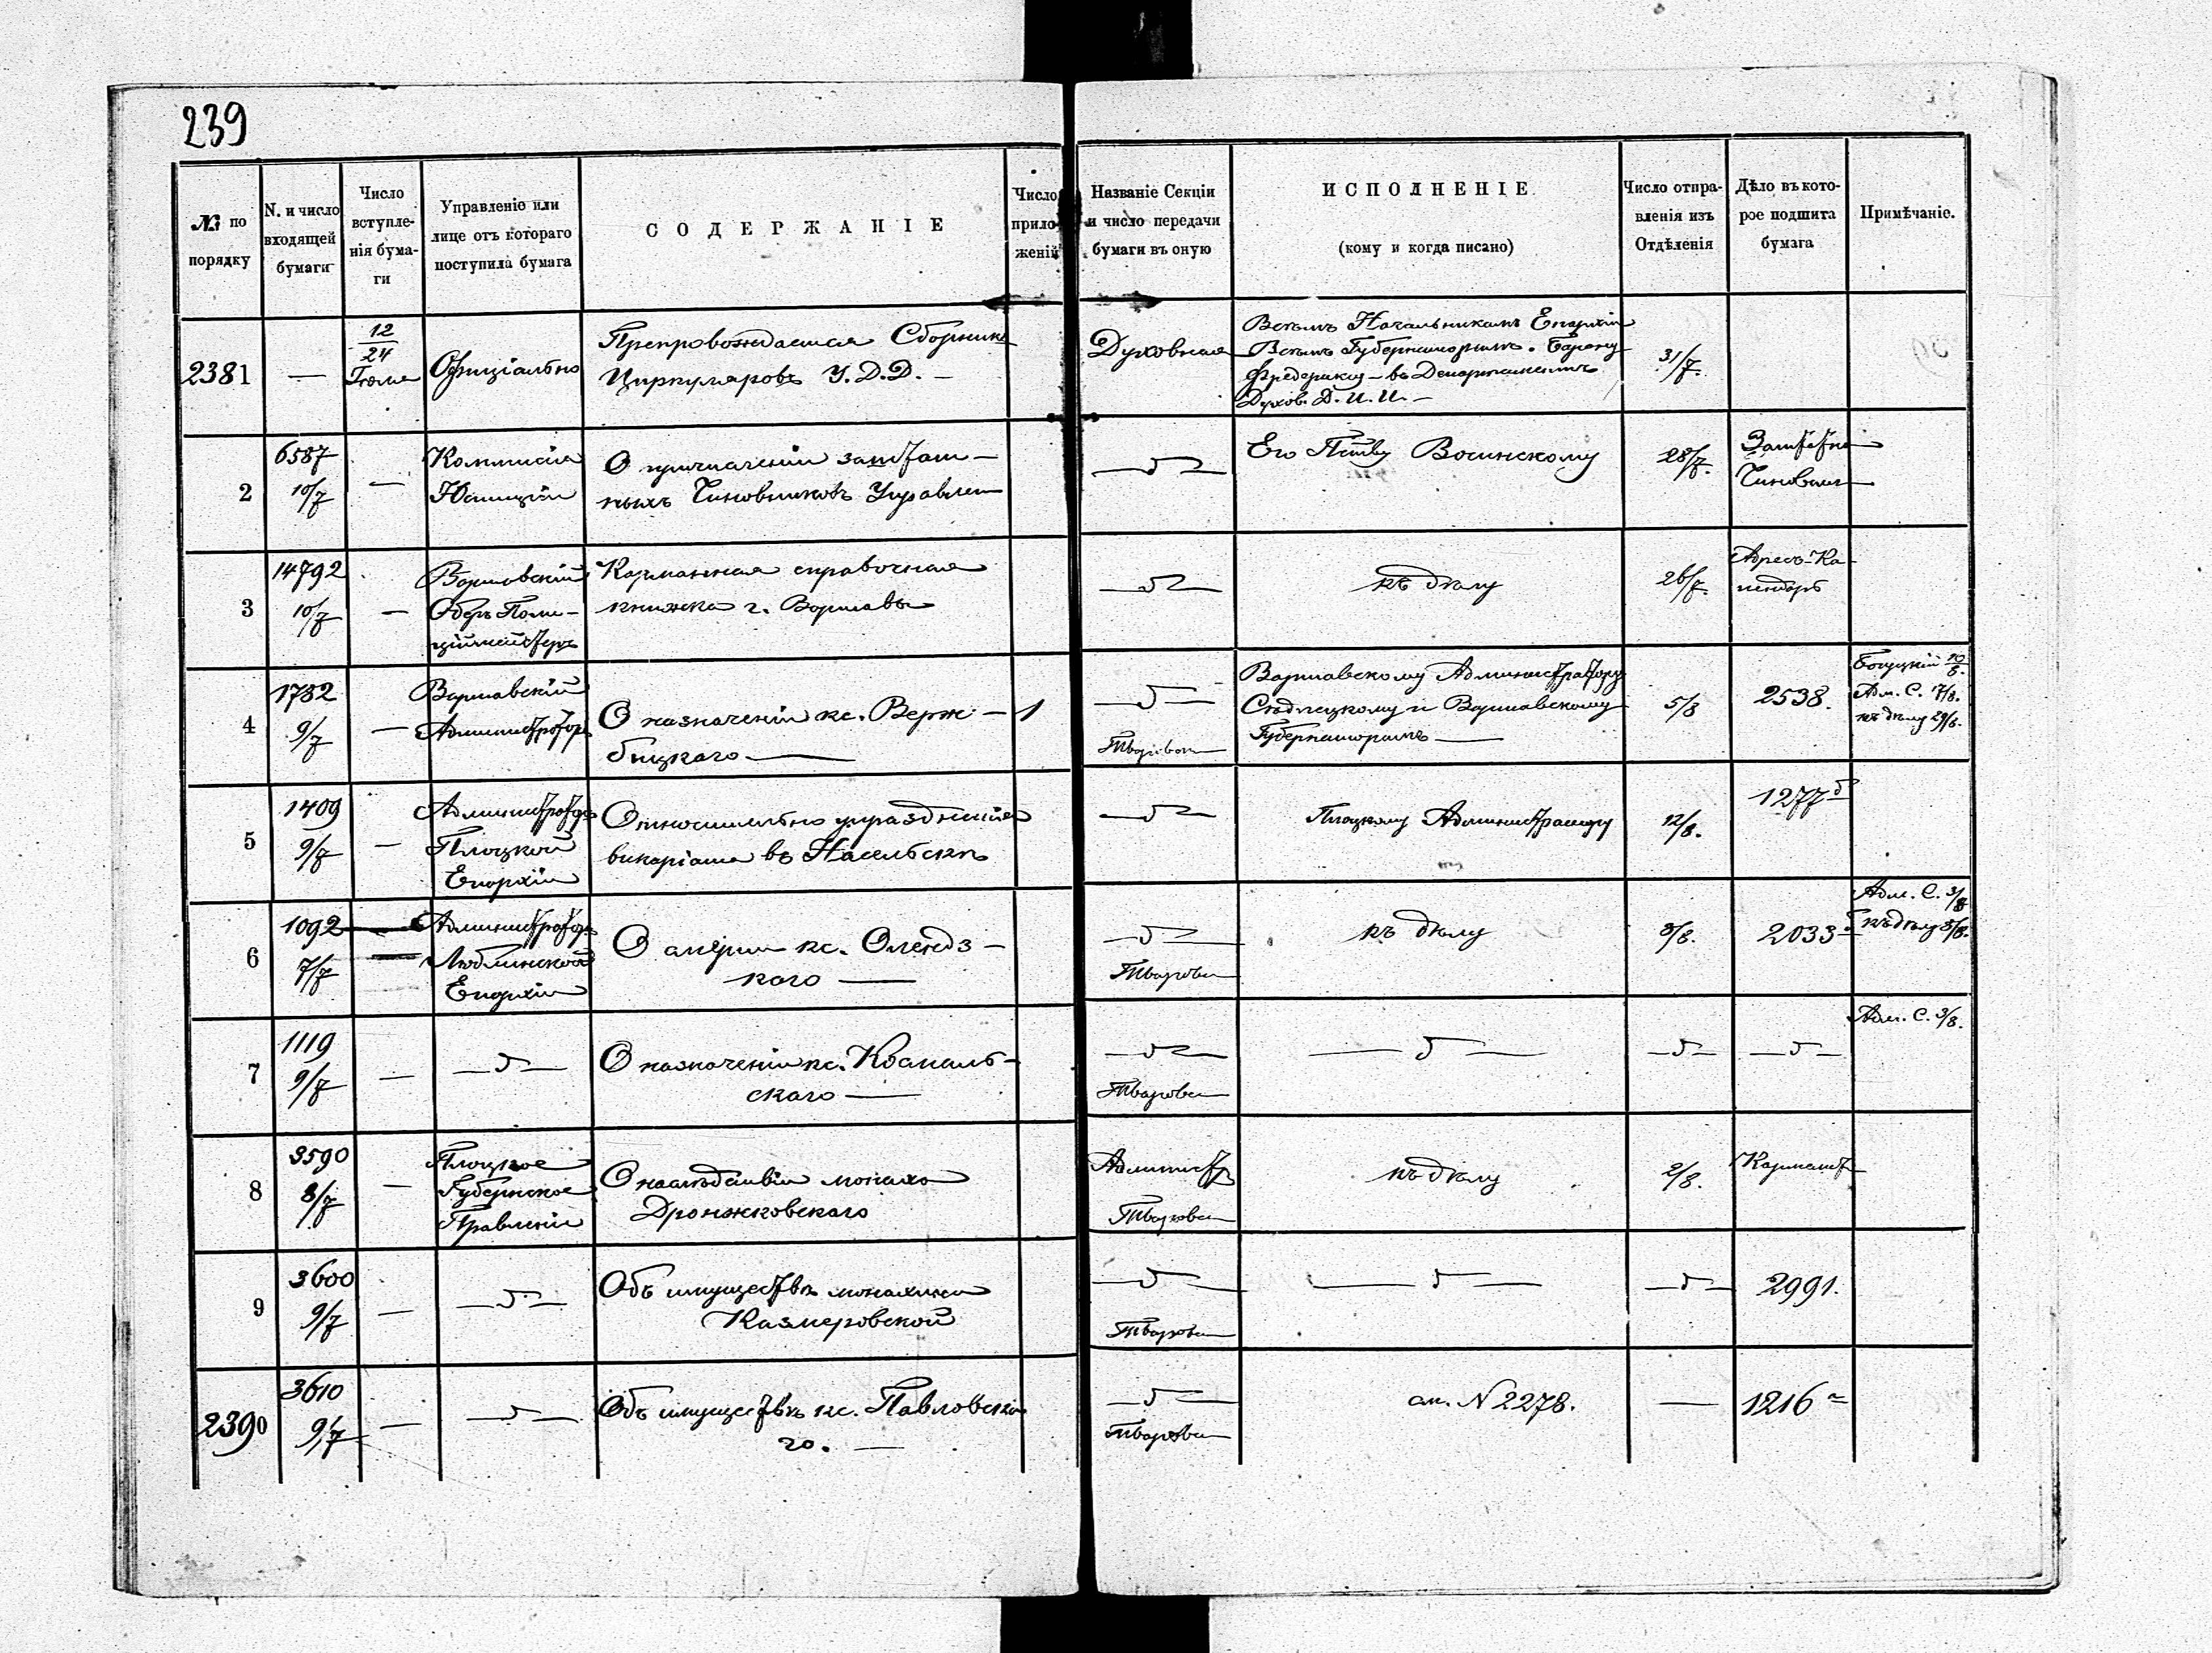 239
№ по порядку
N. и число входящей бумаги
Число вступленія бумаги
Управленіе или лице отъ котораго поступила бумага
СОДЕРЖАНІЕ
Число приложеній
Названіе Секціи и число передачи бумаги въ оную
ИСПОЛНЕНІЕ
(кому и когда писано)
Число отправленія изъ Отдѣленія
Дѣло въ которое подшита бумага
Примѣчаніе.
2381
—
12/24
Іюля
Офиціально
Препровождается Сборникъ
Циркуляровъ У.Д.Д. —
Духовная
Всѣмъ Начальникамъ Епархій
Всѣмъ Губернаторамъ. Барону
Фредериксу — въ Департаментъ
Духов. Д. И. И. —
31/7.
2
6587
10/7
—
Коммисія
Юстиціи
О причисленіи заштат—
ныхъ Чиновниковъ Управлен
Его
28/7.
Заштатн
Чиновник
3
14792
10/7
—
Варшавскій
Оберъ Поли—
ціймейстеръ
Карманная справочная
книжка г. Варшавы
къ дѣлу
26/7.
Адресъ-Ка—
лендарь
4
1732
9/7
—
Варшавскій
Администраторъ
О назначеніи кс. Верж—
бицкаго —
1
Варшавскому Администратору
Сѣдлецкому и Варшавскому
Губернаторамъ —
5/8
2538.
Адм. С. 7/8.
къ дѣлу 29/8.
5
1409
9/7
—
Администраторъ
Плоцкой
Епархіи
Относительно упраздненія
викаріата въ Насельскѣ
Плоцкому Администратору
12/8.
1277
6
1092
7/7
Администраторъ
Люблинской
Епархіи
О смерти кс. Олендз—
каго —
къ дѣлу
8/8.
2033
Адм. С. 3/8
къ дѣлу 8/8.
7
1119
9/7
—
О назначеніи кс. Космаль—
скаго —
Адм. С. 3/8.
8
3590
8/7
—
Плоцкое
Губернское
Правленіе
О наслѣдствіи монаха
Дронжковскаго
Администр
къ дѣлу
2/8.
9
3600
9/7
—
Объ имуществѣ монахини
Казмеровской
2991.
2390
3610
9/7
—
Объ имуществѣ кс. Павловска
го. —
см. N 2278.
—
1216